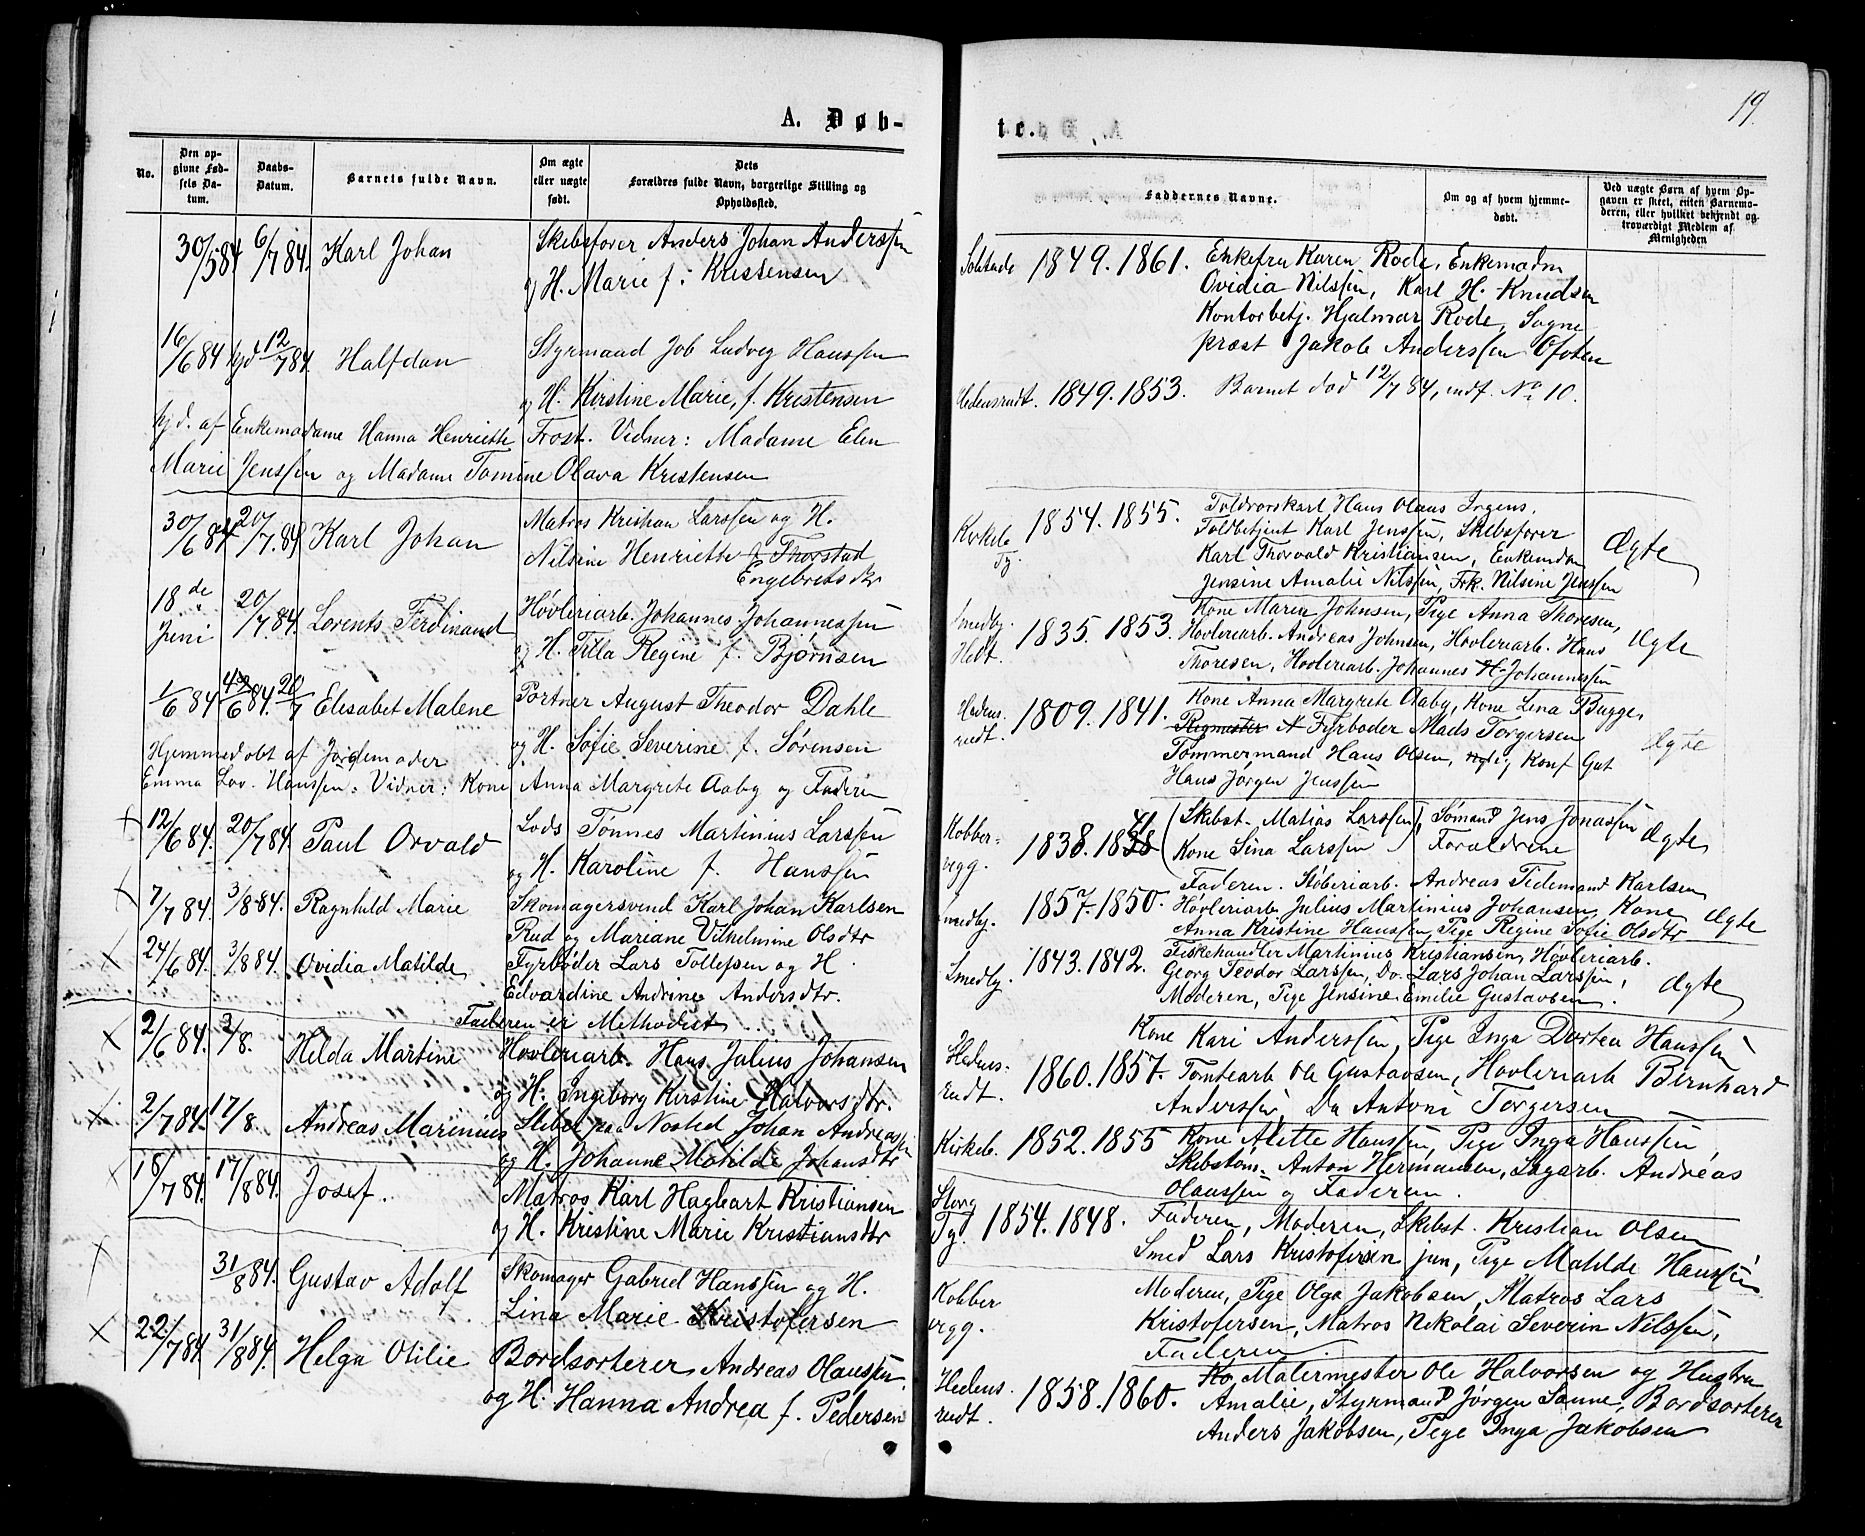 19.
A. Døb-
te.
No.
Den opgivne Fødsels Datum.
Daabs-Datum.
Barnets fulde Navn.
Om ægte eller uægte født.
Dets Forældres fulde Navn, borgerlige Stilling og Opholdssted.
Faddernes Navne.
Om og af hvem hjemmedøbt.
Ved uægte Børn af hvem Opgaven er skeet, enten Barnemoderen, eller hvilket bekjendt og troværdigt Medlem af Menigheden
30/5 84 6/7 84. Karl Johan
Skibsfører Anders Johan Anderssen
og H. Marie f. Kristensen
1849. 1861. Enkefru Karen Rode, Enkemadm
Ovidia Nilssen, Karl H. Knudsen
Kontorbetj. Hjalmar Rode, Sogne
præst Jakob Anderssen Ofoten
16/6 84 hjd 12/7 84 Halfdan
Styrmand Job Ludvig Hanssen
og H. Kirstine Marie, f. Kristensen
hjd. af Enkemadame Hanna Henriette Frost. Vidner: Madame Elen
Marie Jenssen og Madame Tomine Olava Kristensen
Hedensrudt. 1849. 1853. Barnet død 12/7 84, indf. No 10.
30/6 84 20/7. 84 Karl Johan
Matros Kristian Larssen og H.
Nilsine Henriette f. Thorstad
Engebretsdtr
Kirkeb. Tg. 1854. 1855. Toldrorskarl Hans Olaus Irgens,
Toldbetjent Karl Jenssen, Skibsfører
Karl Thorvald Kristiansen, Enkemdm
Jensine Amalie Nilssen, Frk. Nilsine Jenssen
Ægte
18de Juni 20/7 84. Lorents Ferdinand
Høvleriarb. Johannes Johannessen
og H. Titta Regine f. Bjørnsen
Smedbj. Hedt. 1835. 1853. Kone Maren Johnsen, Pige Anna Thoresen,
Høvleriarb. Andreas Johnsen, Høvleriarb. Hans
Thoresen, Høvleriarb. Johannes H. Johannessen
Ægte
1/6 84 4/6 84. 20/7 Elisabet Malene
Portner August Theodor Dahle
og H. Sofie Severine f. Sørensen
Hjemmedøbt af Jordemoder
Emma Lov. Hanssen. Vidner: Kone Anna Margrete Aaby og Faderen
Hedensrudt. 1809. 1841. Kone Anna Margrete Aaby, Kone Lena Bugge,
Rigmester N Fyrbøder Mads Torgersen
Tømmermand Hans Olsen, og Konf Gut
Hans Jørgen Jenssen
Ægte
12/6 84. 20/7 84. Paul Orvald
Lods Tønnes Martinius Larssen
og H. Karoline f. Hanssen
Kobbervegg. 1838. 1838 41 Skibst. Matias Larssen, Sømand Jens Jonassen
Kone Lina Larssen Forældrene
Ægte
7/7 84. 3/8 84. Ragnhild Marie
Skomagersvend Karl Johan Karlsen
Rud og Mariane Vilhelmine Olsdtr
Smedbj. 1857. 1850. Faderen. Støberiarb. Andreas Tidemand Karlsen
Høvleriarb Julius Martinius Johansen, Kone
Anna Kristine Hanssen, Pige Regine Sofie Olsdtr
Ægte
24/6 84. 3/8 84. Ovidia Matilde
Fyrbøder Lars Tollefsen og H.
Edvardine Andrine Andersdtr.
Faderen er Methodist
Smedbj. 1843. 1842. Fiskehandler Martinius Kristiansen, Høvleriarb.
Georg Teodor Larssen, Do. Lars Johan Larssen,
Moderen, Pige Jensine Emilie Gustavsen.
Ægte
2/6 84. 3/8. Hilda Martine
Høvleriarb. Hans Julius Johansen
og H. Ingeborg Kirstine Halvorsdtr.
Hedensrudt. 1860. 1857. Kone Kari Anderssen, Pige Inga Dortea Hanssen
Tomtearb Ole Gustavsen, Høvleriarb Bernhard
Anderssen, Do Antoni Torgersen
2/7 84. 17/8. Andreas Marinius
Sliber paa Nosted Johan Andreassen
og H. Johanne Matilde Johansdtr
Kirkeb. 1852. 1855 Kone Alette Hanssen, Pige Inga Hanssen
Skibstøm. Anton Hermansen, Sagarb. Andreas
Olaussen og Faderen.
18/7 84. 17/8 84. Josef.
Matros Karl Hagbart Kristiansen
og H. Kristine Marie Kristiansdtr
Storg Tgd. 1854. 1848. Faderen, Moderen, Skibst. Kristian Olsen
Smed Lars Kristofersen jun, Pige Matilde Hanssen
31/8 84. Gustav Adolf
Skomager Gabriel Hanssen og H.
Lina Marie Kristofersen
Kobbervegg. Moderen, Pige Olga Jakobsen, Matros Lars
Kristofersen, Matros Nikolai Severin Nilssen,
Faderen.
22/7 84. 31/8 84. Helga Otilie
Bordsorterer Andreas Olaussen,
og H. Hanna Andrea f. Pedersen
Hedensrudt. 1858. 1860. Ko Malermester Ole Halvorsen og Hustru
Amalie, Styrmand Jørgen Sanne, Bordsorterer
Anders Jakobsen, Pige Inga Jakobsen